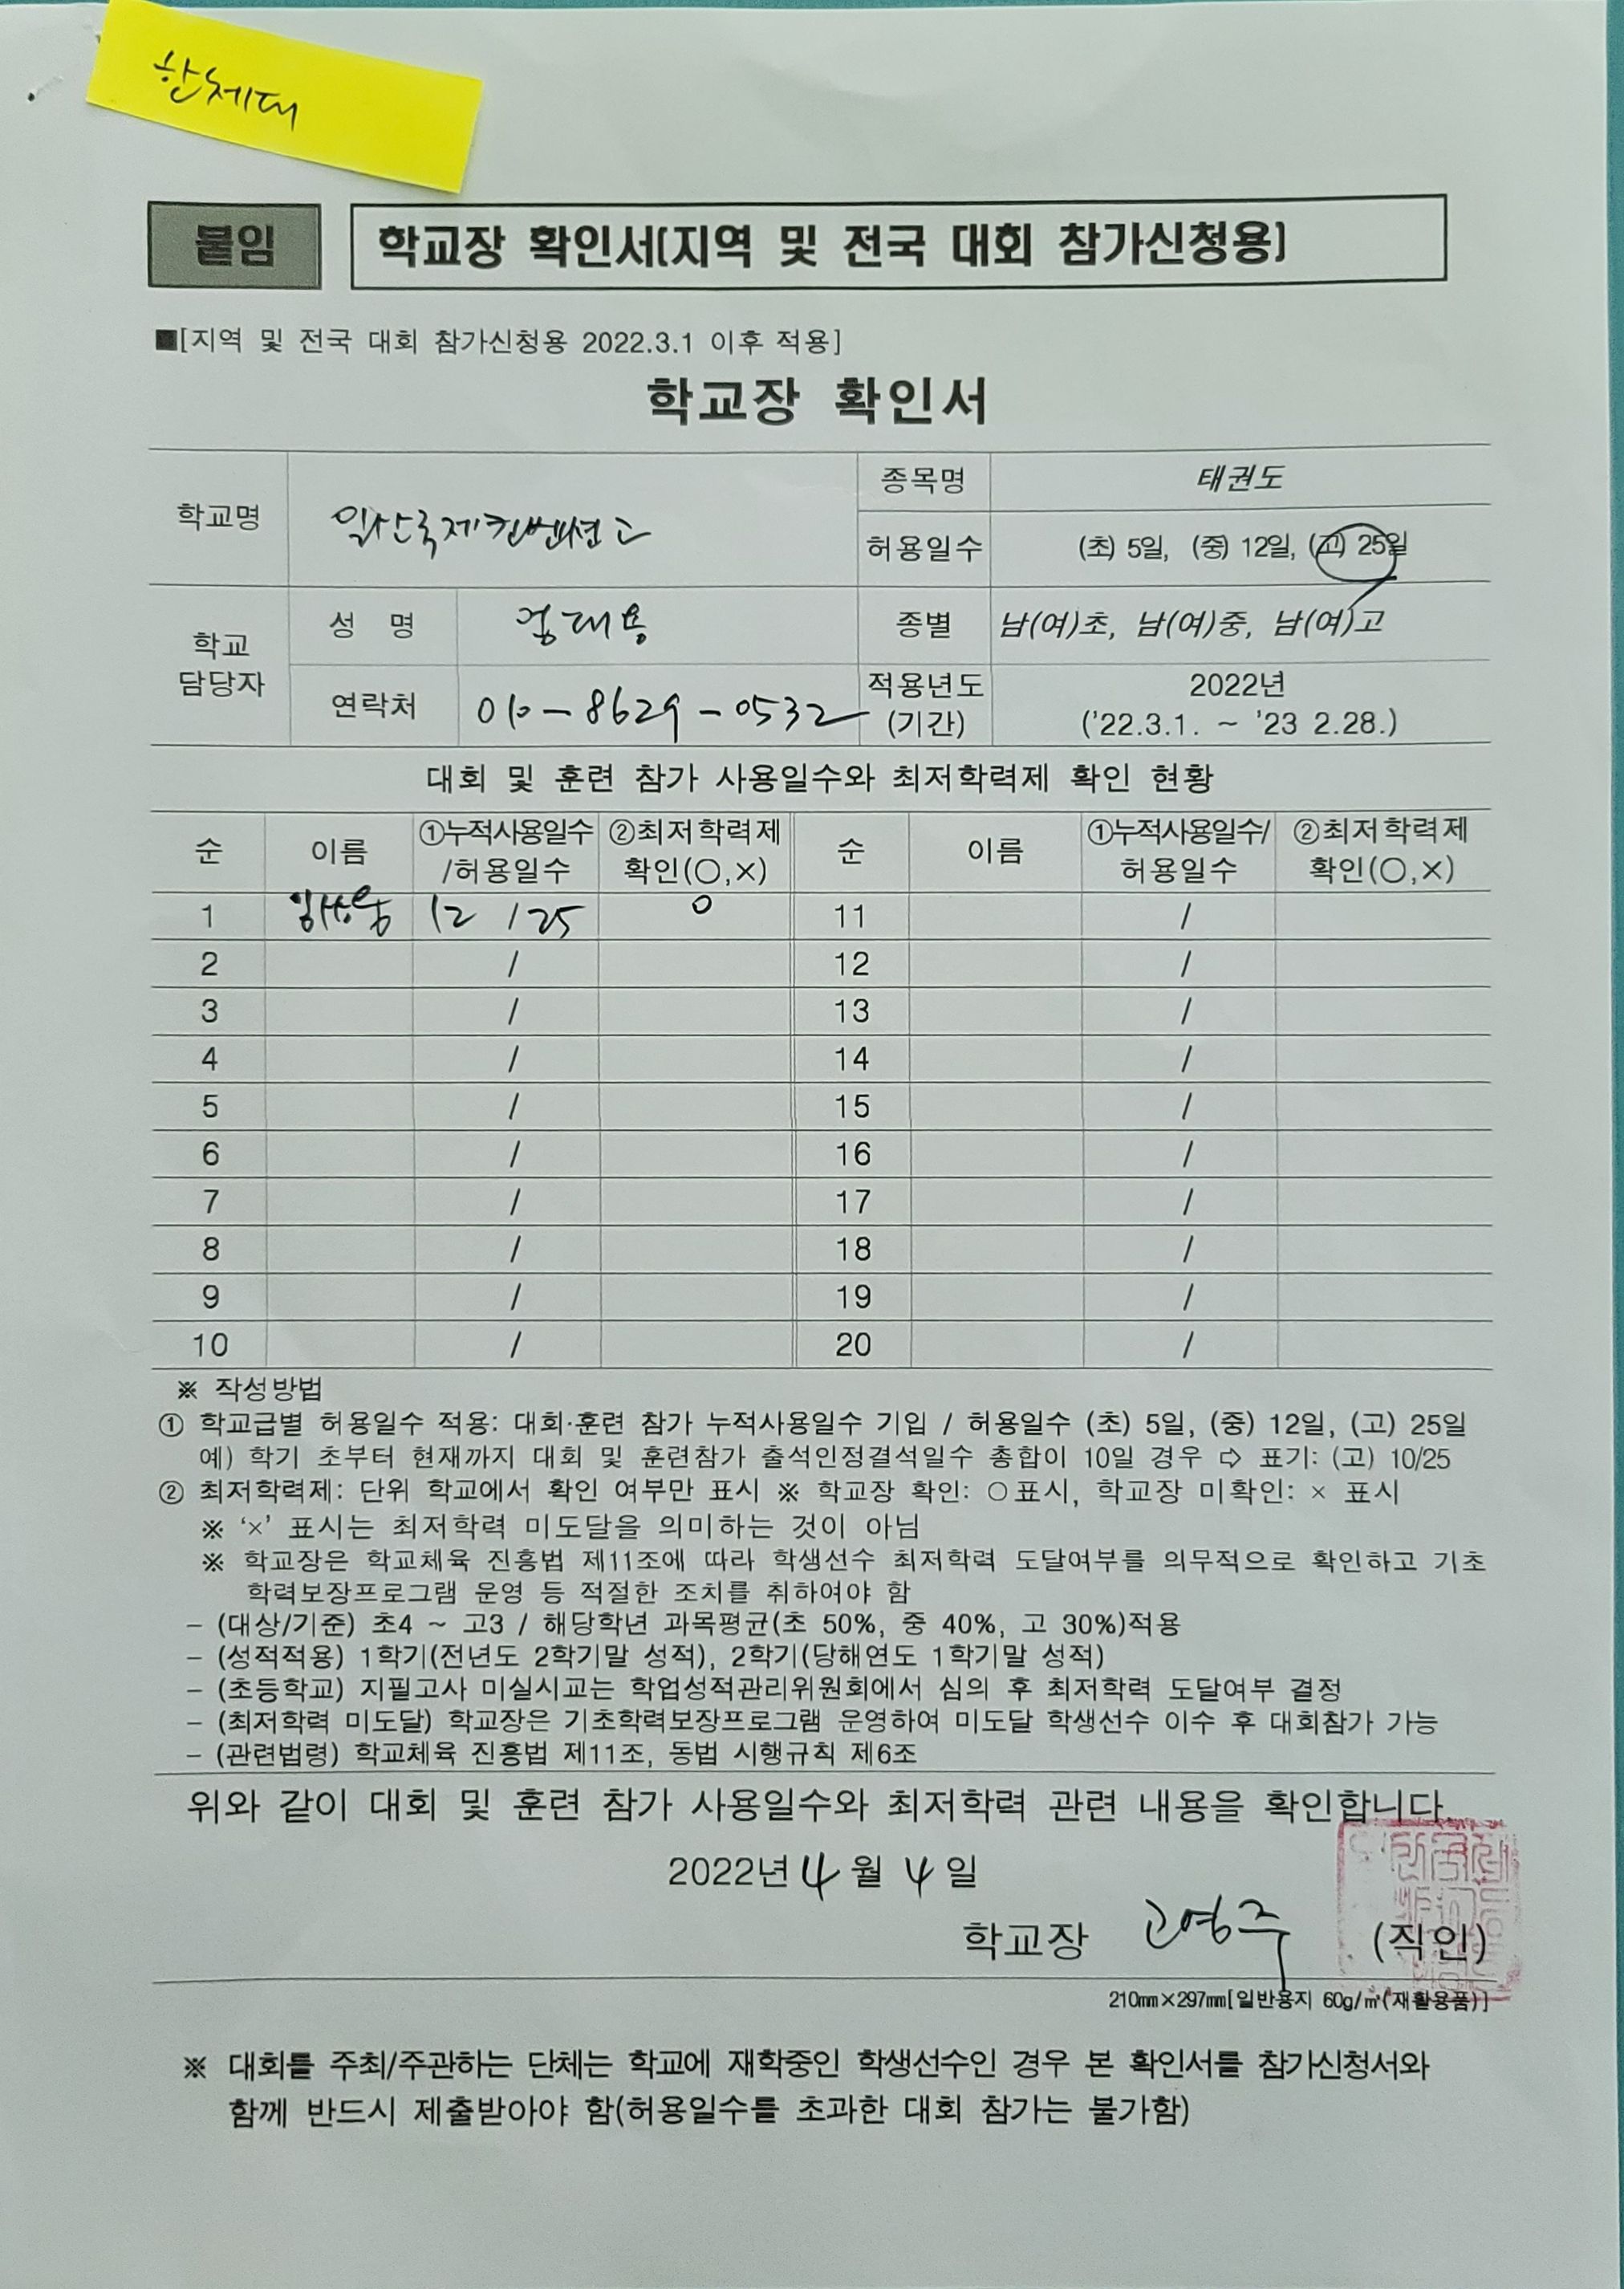 한체대
붙임
학교장 확인서(지역 및 전국 대회 참가신청용)
■[지역 및 전국 대회 참가신청용 2022.3.1 이후 적용]
학교장 확인서
학교명 일산국제컨벤션고 종목명 태권도
허용일수 (초) 5일, (중) 12일, (고) 25일
학교 담당자 성 명 종별 남(여)초, 남(여)중, 남(여)고
연락처 010-8629-0532 적용년도 (기간) 2022년 ('22.3.1. ~ '23 2.28.)
대회 및 훈련 참가 사용일수와 최저학력제 확인 현황
순 이름 ①누적사용일수/허용일수 ②최저학력제 확인(○,×) 순 이름 ①누적사용일수/허용일수 ②최저학력제 확인(○,×)
1 12 / 25 ○ 11 /
2 / 12 /
3 / 13 /
4 / 14 /
5 / 15 /
6 / 16 /
7 / 17 /
8 / 18 /
9 / 19 /
10 / 20 /
※ 작성방법
① 학교급별 허용일수 적용: 대회·훈련 참가 누적사용일수 기입 / 허용일수 (초) 5일, (중) 12일, (고) 25일
예) 학기 초부터 현재까지 대회 및 훈련참가 출석인정결석일수 총합이 10일 경우 ⇨ 표기: (고) 10/25
② 최저학력제: 단위 학교에서 확인 여부만 표시 ※ 학교장 확인: ○표시, 학교장 미확인: × 표시
※ '×' 표시는 최저학력 미도달을 의미하는 것이 아님
※ 학교장은 학교체육 진흥법 제11조에 따라 학생선수 최저학력 도달여부를 의무적으로 확인하고 기초
학력보장프로그램 운영 등 적절한 조치를 취하여야 함
- (대상/기준) 초4 ~ 고3 / 해당학년 과목평균(초 50%, 중 40%, 고 30%)적용
- (성적적용) 1학기(전년도 2학기말 성적), 2학기(당해연도 1학기말 성적)
- (초등학교) 지필고사 미실시교는 학업성적관리위원회에서 심의 후 최저학력 도달여부 결정
- (최저학력 미도달) 학교장은 기초학력보장프로그램 운영하여 미도달 학생선수 이수 후 대회참가 가능
- (관련법령) 학교체육 진흥법 제11조, 동법 시행규칙 제6조
위와 같이 대회 및 훈련 참가 사용일수와 최저학력 관련 내용을 확인합니다.
2022년 4월 4일
학교장 고영주 (직인)
210mm×297mm[일반용지 60g/㎡(재활용품)]
※ 대회를 주최/주관하는 단체는 학교에 재학중인 학생선수인 경우 본 확인서를 참가신청서와
함께 반드시 제출받아야 함(허용일수를 초과한 대회 참가는 불가함)